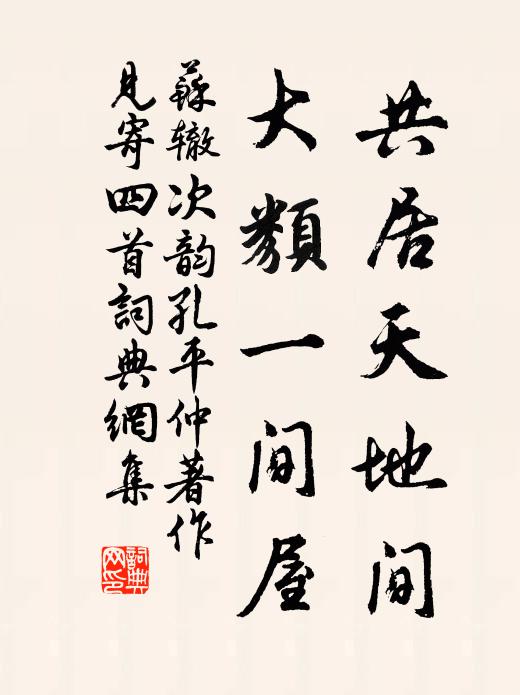 共居天地间
大類一间屋
蘇辙次韵孔平仲著作
見寄四首詞典網集
詞典網印